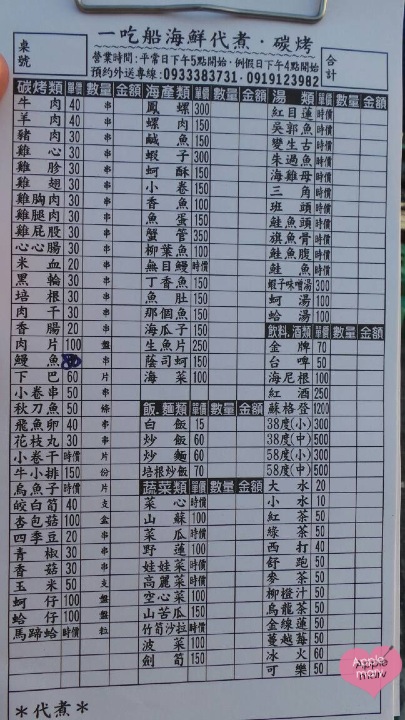 一吃船海鮮代煮·碳烤
桌號
營業時間:平常日下午5點開始·例假日下午4點開始
預約外送專線:0933383731·0919123982
合計
碳烤類 單價 數量 金額
牛肉 40 串
羊肉 40 串
豬肉 30 串
雞心 30 串
雞胗 30 串
雞翅 30 串
雞胸肉 30 串
雞腿肉 30 串
雞屁股 30 串
心心腸 30 串
米血 20 串
黑輪 30 串
培根 30 串
肉干 30 串
香腸 20 串
肉片 100 盤
鰻魚 串
下巴 60 片
小卷串 50 串
秋刀魚 50 條
飛魚卵 40 串
花枝丸 30 串
小卷干 時價 片
牛小排 150 份
烏魚子 時價 片
皎白筍 40 支
杏包菇 100 盒
四季豆 20 串
青椒 30 串
香菇 30 串
玉米 50 支
蚵仔 100 盤
蛤仔 100 盤
馬蹄蛤 時價 粒
海產類 單價 數量 金額
鳳螺 300
螺肉 150
鹹魚 150
蝦子 300
蚵酥 150
小卷 150
香魚 100
魚蛋 150
蟹管 350
柳葉魚 100
無目鰻 時價
丁香魚 150
魚肚 150
那個魚 150
海瓜子 150
生魚片 250
蔭豉蚵 150
海菜 100
飯.麵類 單價 數量 金額
白飯 15
炒飯 60
炒麵 60
培根炒飯 70
蔬菜類 單價 數量 金額
菜心 時價
山蘇 100
菜瓜 時價
野蓮 100
娃娃菜 時價
高麗菜 時價
空心菜 100
山苦瓜 150
竹筍沙拉 時價
波菜 100
劍筍 150
湯類 單價 數量 金額
紅目蓮 時價
吳郭魚 時價
變生古 時價
朱過魚 時價
海雞母 時價
三角 時價
班頭 時價
鮭魚頭 時價
旗魚骨 時價
鮭魚腹 時價
鮭魚 時價
蝦子味噌湯 300
蚵湯 100
蛤湯 100
飲料.酒類 單價 數量 金額
金牌 70
台啤 50
海尼根 100
紅酒 250
蘇格登 1200
38度(小) 300
38度(中) 500
58度(小) 300
58度(中) 500
大水 20
小水 10
紅茶 50
綠茶 50
西打 40
舒跑 50
麥茶 50
柳橙汁 50
烏龍茶 50
金線蓮 50
蔓越莓 50
冰火 60
可樂 50
*代煮*
Apple
man